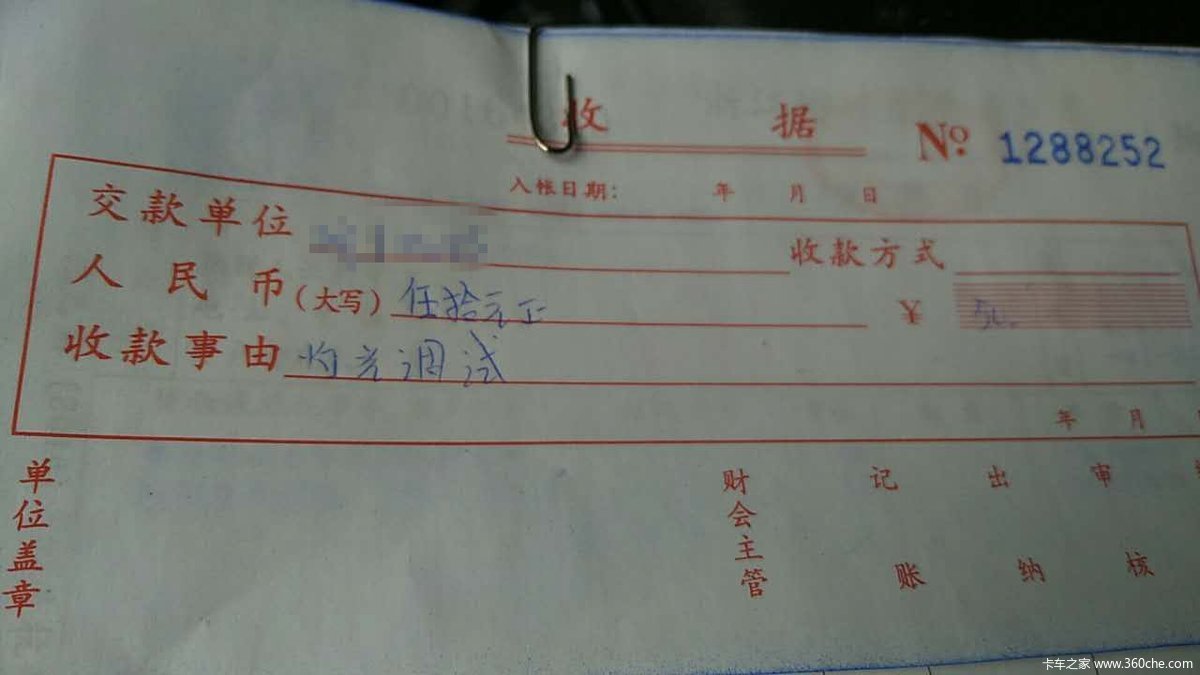 收 据 No. 1288252
入帐日期: 年 月 日
交款单位 收款方式
人民币(大写) 伍拾元正 ¥ 50.
收款事由 灯光调试
年 月
单位盖章 财会主管 记账 出纳 审核
卡车之家 www.360che.com